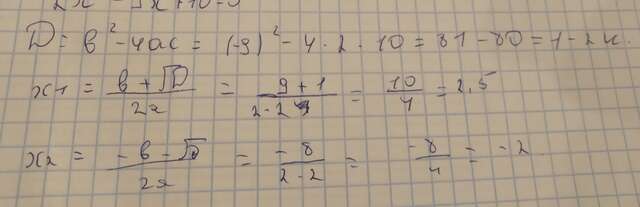 D = b² - 4ac = (-9)² - 4 · 2 · 10 = 81 - 80 = 1 - 2к.
x1 = (b + √D) / 2a = (9 + 1) / (2 · 2) = 10 / 4 = 2,5
x2 = (-b - √D) / 2a = -8 / (2 · 2) = -8 / 4 = -2